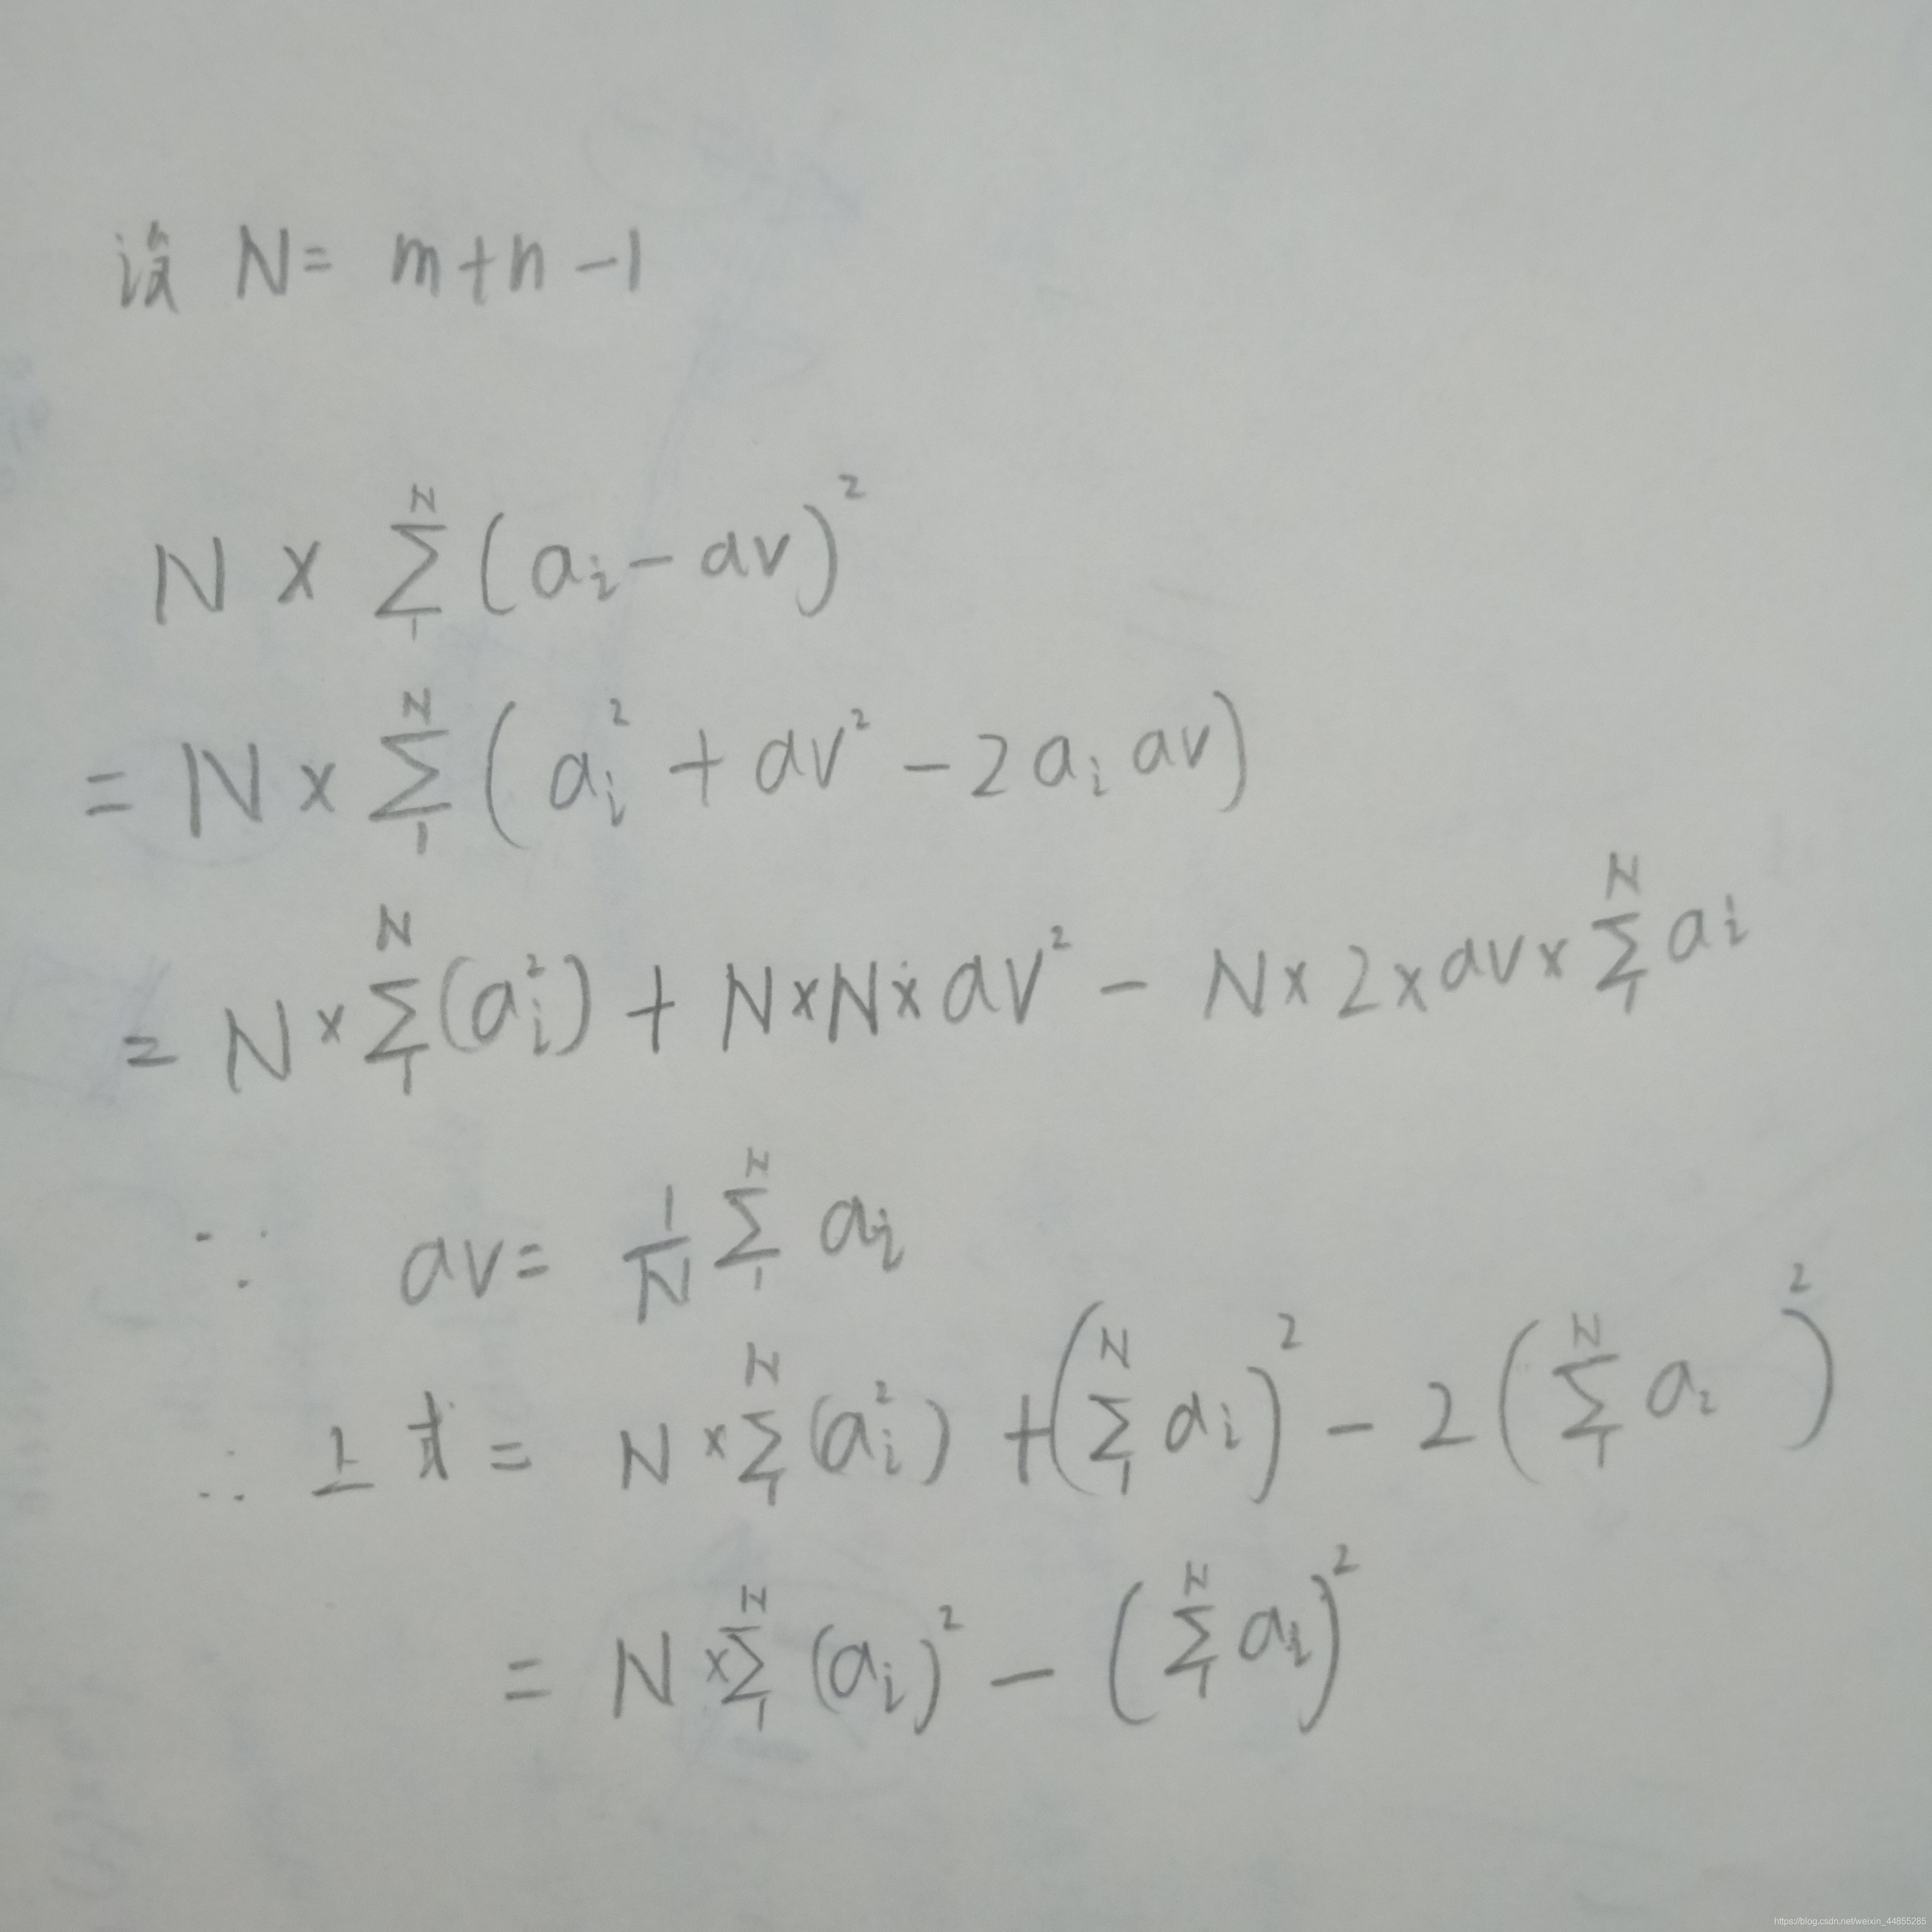 设 N = m+n-1
N × \sum_{1}^{N} (a_i - av)^2
= N × \sum_{1}^{N} (a_i^2 + av^2 - 2a_i av)
= N × \sum_{1}^{N} (a_i^2) + N×N×av^2 - N×2×av×\sum_{1}^{N} a_i
∵ av = \frac{1}{N} \sum_{1}^{N} a_i
∴ 上式 = N × \sum_{1}^{N} (a_i^2) + (\sum_{1}^{N} a_i)^2 - 2(\sum_{1}^{N} a_i)^2
= N × \sum_{1}^{N} (a_i)^2 - (\sum_{1}^{N} a_i)^2
https://blog.csdn.net/weixin_44855285